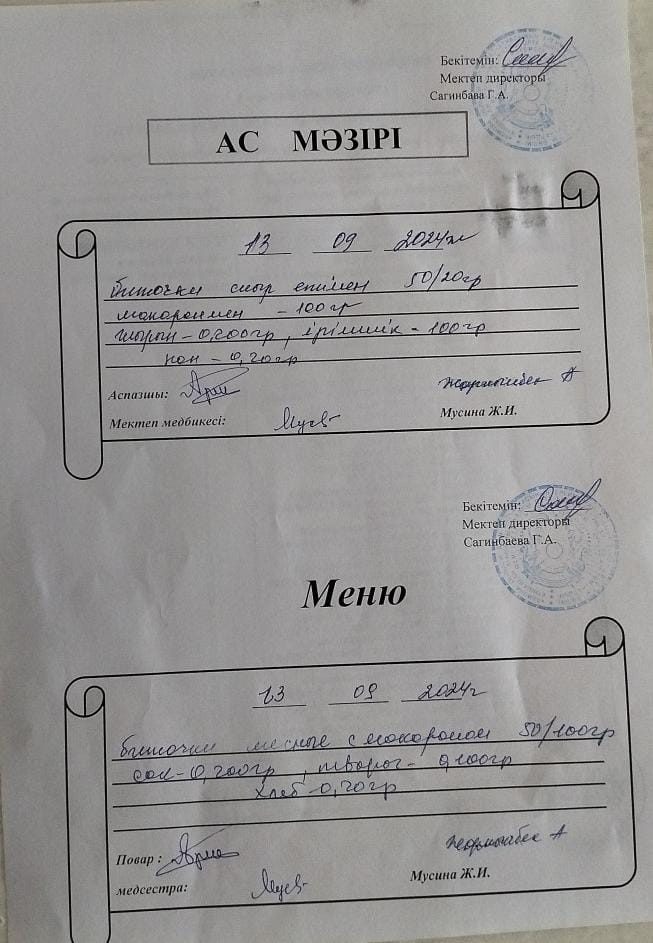 Бекітемін:
Мектеп директоры
Сагинбава Г.А.
АС МӘЗІРІ
13 09 2024ж
Биточки сиыр етімен 50/20гр
макаронмен - 100гр
шырын - 0,200гр, ірімшік - 100гр
нан - 0,20гр
Аспазшы:
Мектеп медбикесі: Мусина Ж.И.
Бекітемін:
Мектеп директоры
Сагинбаева Г.А.
Меню
13 09 2024г
биточки мясные с макароном 50/100гр
сок - 0,200гр, творог - 0,100гр
хлеб - 0,20гр
Повар :
медсестра: Мусина Ж.И.